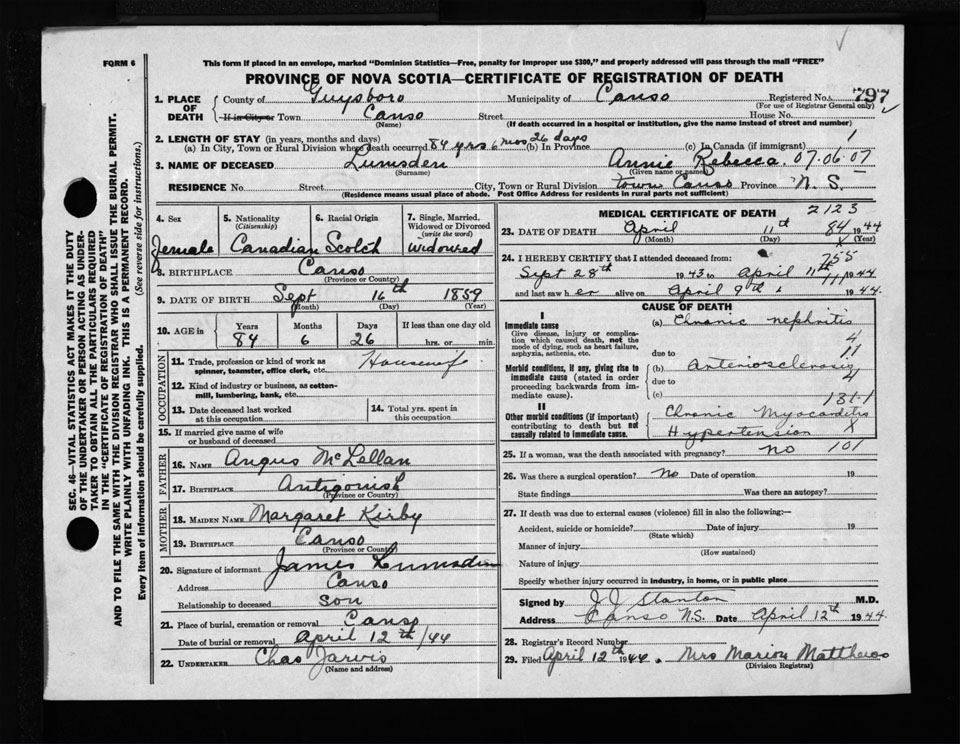 FORM 6
This form if placed in an envelope, marked "Dominion Statistics—Free, penalty for improper use $300," and properly addressed will pass through the mail "FREE"
PROVINCE OF NOVA SCOTIA—CERTIFICATE OF REGISTRATION OF DEATH
SEC. 46—VITAL STATISTICS ACT MAKES IT THE DUTY
OF THE UNDERTAKER OR PERSON ACTING AS UNDER-
TAKER TO OBTAIN ALL THE PARTICULARS REQUIRED
IN THE "CERTIFICATE OF REGISTRATION OF DEATH"
AND TO FILE THE SAME WITH THE DIVISION REGISTRAR WHO SHALL ISSUE THE BURIAL PERMIT.
WRITE PLAINLY WITH UNFADING INK. THIS IS A PERMANENT RECORD.
Every item of information should be carefully supplied. (See reverse side for instructions.)
1. PLACE OF DEATH County of Guysboro Municipality of Canso Registered No. 797
(For use of Registrar General only)
If in City or Town Canso Street House No.
(Name) (If death occurred in a hospital or institution, give the name instead of street and number)
2. LENGTH OF STAY (in years, months and days)
(a) In City, Town or Rural Division where death occurred 84 yrs 6 mos 26 days (b) In Province (c) In Canada (if immigrant) 1
3. NAME OF DECEASED Lumsden Annie Rebecca 07.06.07
(Surname) (Given name or names)
RESIDENCE No. Street City, Town or Rural Division Town Canso Province N.S.
(Residence means usual place of abode. Post Office Address for residents in rural parts not sufficient)
4. Sex Female
5. Nationality (Citizenship) Canadian
6. Racial Origin Scotch
7. Single, Married, Widowed or Divorced (write the word) Widowed
8. BIRTHPLACE Canso
(Province or Country)
9. DATE OF BIRTH Sept 16th 1859
(Month) (Day) (Year)
10. AGE in Years 84 Months 6 Days 26 If less than one day old hrs. or min.
OCCUPATION
11. Trade, profession or kind of work as spinner, teamster, office clerk, etc. Housewife
12. Kind of industry or business, as cotton-mill, lumbering, bank, etc.
13. Date deceased last worked at this occupation
14. Total yrs. spent in this occupation
15. If married give name of wife or husband of deceased
FATHER
16. NAME Angus McLellan
17. BIRTHPLACE Antigonish
(Province or Country)
MOTHER
18. MAIDEN NAME Margaret Kirby
19. BIRTHPLACE Canso
(Province or Country)
20. Signature of informant James Lumsden
Address Canso
Relationship to deceased son
21. Place of burial, cremation or removal Canso
Date of burial or removal April 12th/44
22. UNDERTAKER Chas Jarvis
(Name and address)
MEDICAL CERTIFICATE OF DEATH 2123
23. DATE OF DEATH April 11th 84 1944
(Month) (Day) X (Year)
24. I HEREBY CERTIFY that I attended deceased from: 755
Sept 28th 1943 to April 11th 1944
111
and last saw her alive on April 9th 1944.
CAUSE OF DEATH
I
Immediate cause
Give disease, injury or complication which caused death, not the mode of dying, such as heart failure, asphyxia, asthenia, etc.
(a) Chronic nephritis
4
due to 11
Morbid conditions, if any, giving rise to immediate cause (stated in order proceeding backwards from immediate cause).
(b) Arteriosclerosis
due to 4
(c) 131-1
II
Other morbid conditions (if important) contributing to death but not causally related to immediate cause.
Chronic Myocarditis
Hypertension X
25. If a woman, was the death associated with pregnancy? no 101
26. Was there a surgical operation? No Date of operation 19
State findings Was there an autopsy?
27. If death was due to external causes (violence) fill in also the following:—
Accident, suicide or homicide? Date of injury 19
(State which)
Manner of injury
(How sustained)
Nature of injury
Specify whether injury occurred in industry, in home, or in public place
Signed by J J Stanton M.D.
Address Canso N.S. Date April 12th 1944
28. Registrar's Record Number
29. Filed April 12th 1944. Mrs Marion Matthews
(Division Registrar)